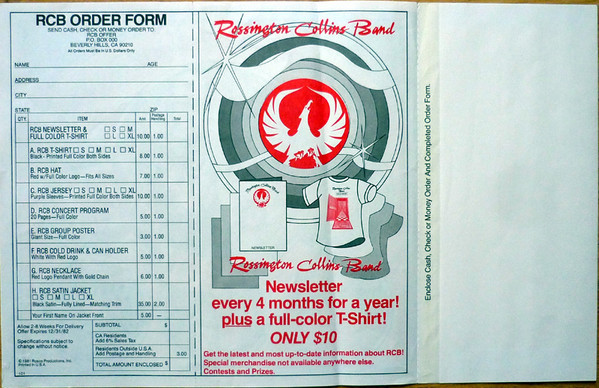 RCB ORDER FORM
SEND CASH, CHECK OR MONEY ORDER TO:
RCB OFFER
P.O. BOX 000
BEVERLY HILLS, CA 90210
All Orders Must Be In U.S. Dollars Only
NAME AGE
ADDRESS
CITY
STATE ZIP
QTY. ITEM Amt. Postage Handling Total
RCB NEWSLETTER & □ S □ M
FULL COLOR T-SHIRT □ L □ XL 10.00 1.00
A. RCB T-SHIRT □ S □ M □ L □ XL
Black - Printed Full Color Both Sides 8.00 1.00
B. RCB HAT
Red w/Full Color Logo—Fits All Sizes 7.00 1.00
C. RCB JERSEY □ S □ M □ L □ XL
Purple Sleeves—Printed Full Color Both Sides 10.00 1.00
D. RCB CONCERT PROGRAM
20 Pages—Full Color 5.00 1.00
E. RCB GROUP POSTER
Giant Size—Full Color 3.00 1.00
F. RCB COLD DRINK & CAN HOLDER
White With Red Logo 5.00 1.00
G. RCB NECKLACE
Red Logo Pendant With Gold Chain 6.00 1.00
H. RCB SATIN JACKET
□ S □ M □ L □ XL
Black Satin—Fully Lined—Matching Trim 35.00 2.00
Your First Name On Jacket Front 5.00 —
Allow 2-8 Weeks For Delivery
Offer Expires 12/31/82
Specifications subject to
change without notice
© 1981 Rossco Productions, Inc.
Printed In U.S.A.
SUBTOTAL $
CA Residents
Add 6% Sales Tax
Residents Outside U.S.A.
Add Postage and Handling 3.00
TOTAL AMOUNT ENCLOSED $
Rossington Collins Band
Rossington Collins Band
NEWSLETTER
Rossington Collins Band
Rossington Collins Band
Newsletter
every 4 months for a year!
plus a full-color T-Shirt!
ONLY $10
Get the latest and most up-to-date information about RCB!
Special merchandise not available anywhere else.
Contests and Prizes.
Enclose Cash, Check or Money Order And Completed Order Form.